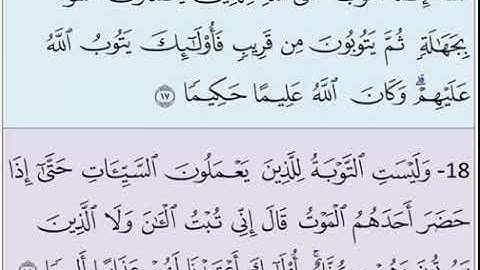 بِجَهَٰلَةٍ ثُمَّ يَتُوبُونَ مِن قَرِيبٍ فَأُوْلَٰٓئِكَ يَتُوبُ ٱللَّهُ
عَلَيْهِمْۗ وَكَانَ ٱللَّهُ عَلِيمًا حَكِيمًا ١٧
18- وَلَيْسَتِ ٱلتَّوْبَةُ لِلَّذِينَ يَعْمَلُونَ ٱلسَّيِّـَٔاتِ حَتَّىٰٓ إِذَا
حَضَرَ أَحَدَهُمُ ٱلْمَوْتُ قَالَ إِنِّي تُبْتُ ٱلْـَٰٔنَ وَلَا ٱلَّذِينَ
أُوْلَٰٓئِكَ أَعْتَدْنَا لَهُمْ عَذَابًا أَلِيمًا